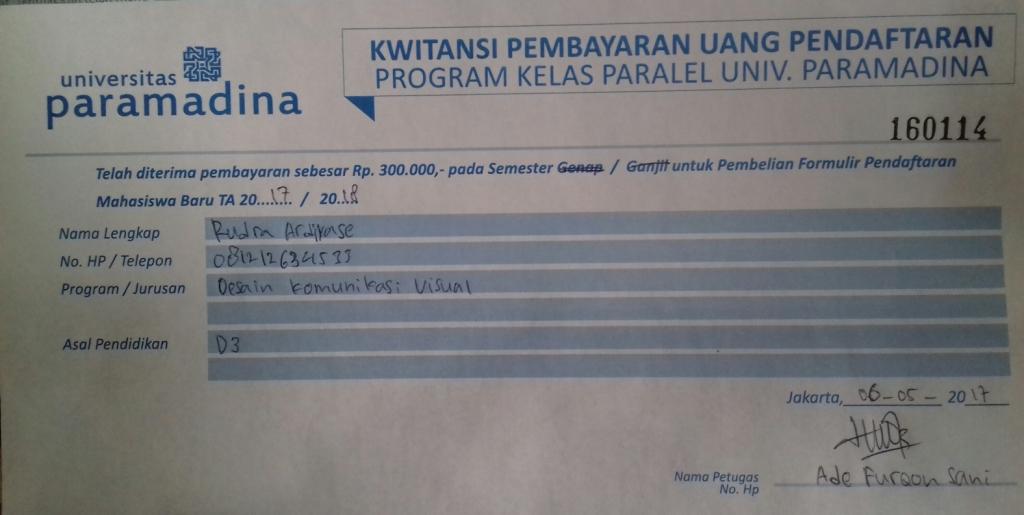 universitas
paramadina
KWITANSI PEMBAYARAN UANG PENDAFTARAN
PROGRAM KELAS PARALEL UNIV. PARAMADINA
160114
Telah diterima pembayaran sebesar Rp. 300.000,- pada Semester Genap / Ganjil untuk Pembelian Formulir Pendaftaran
Mahasiswa Baru TA 20...17. / 20.18
Nama Lengkap Rudra
No. HP / Telepon
Program / Jurusan Desain Komunikasi Visual
Asal Pendidikan D3
Jakarta, 06-05- 2017
Nama Petugas Ade Furqon Sani
No. Hp